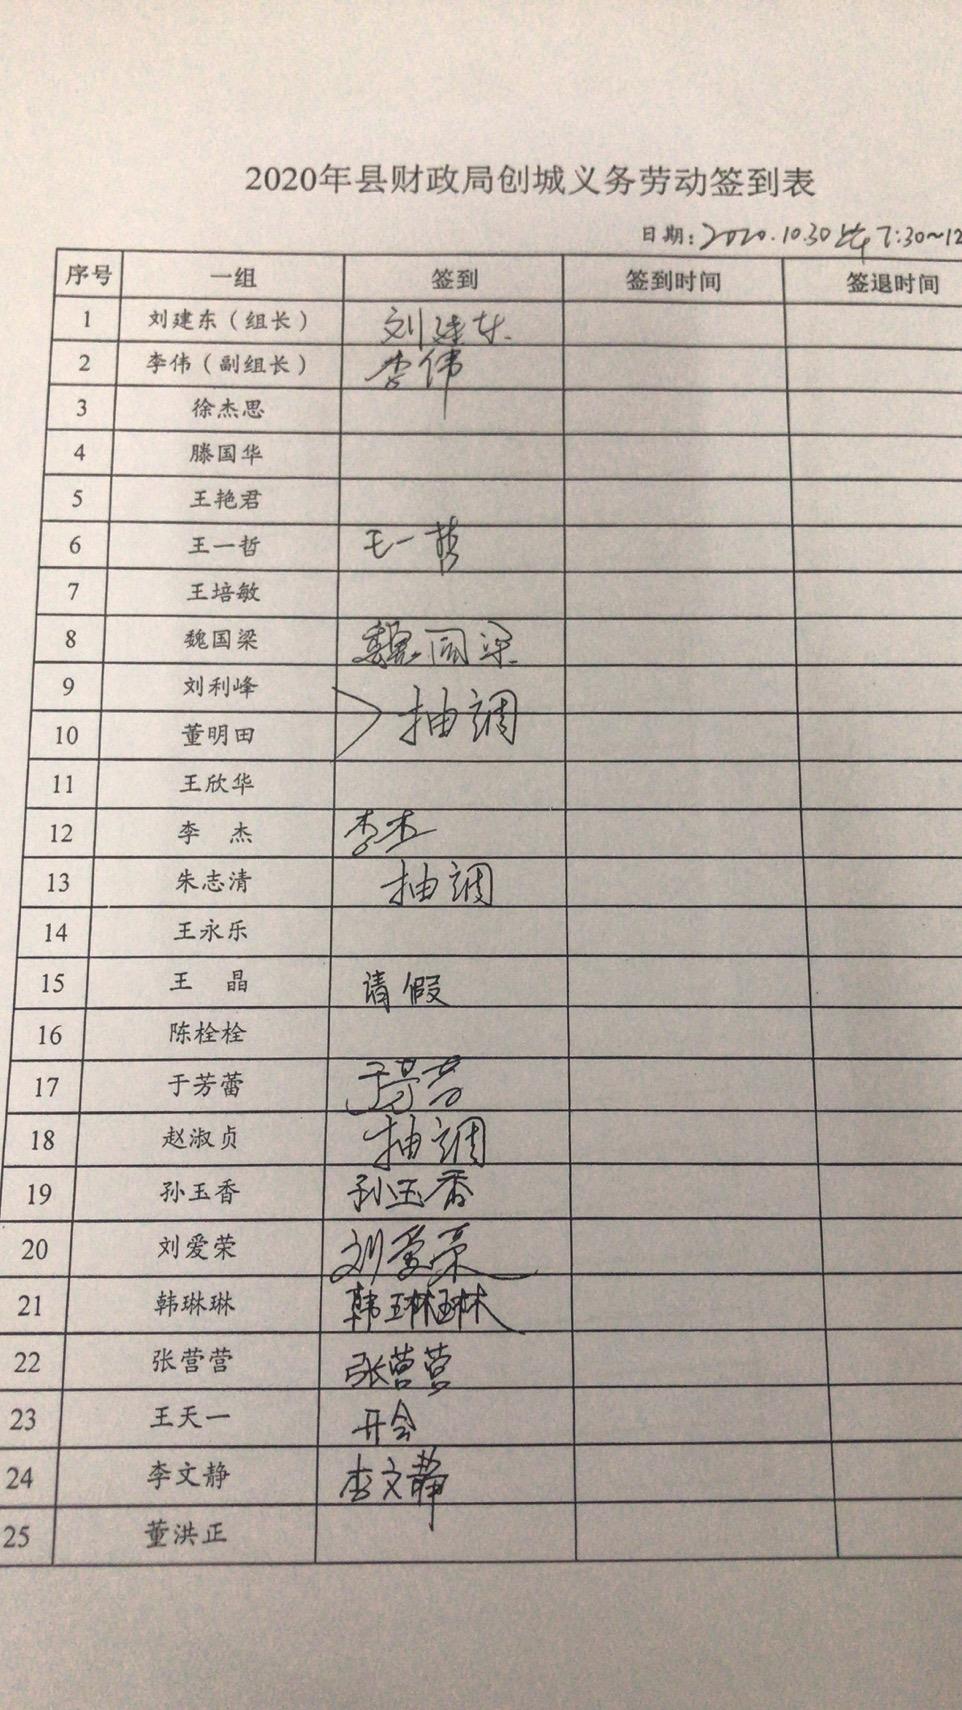 2020年县财政局创城义务劳动签到表
日期:2020.10.30 7:30~12
序号 一组 签到 签到时间 签退时间
1 刘建东（组长） 刘建东
2 李伟（副组长） 李伟
3 徐杰思
4 滕国华
5 王艳君
6 王一哲 王一哲
7 王培敏
8 魏国梁 魏国梁
9 刘利峰 抽調
10 董明田
11 王欣华
12 李 杰 李杰
13 朱志清 抽調
14 王永乐
15 王 晶 请假
16 陈栓栓
17 于芳蕾
18 赵淑贞 抽調
19 孙玉香 孙玉香
20 刘爱荣 刘爱荣
21 韩琳琳 韩琳琳
22 张营营 张营营
23 王天一 开会
24 李文静 李文静
25 董洪正